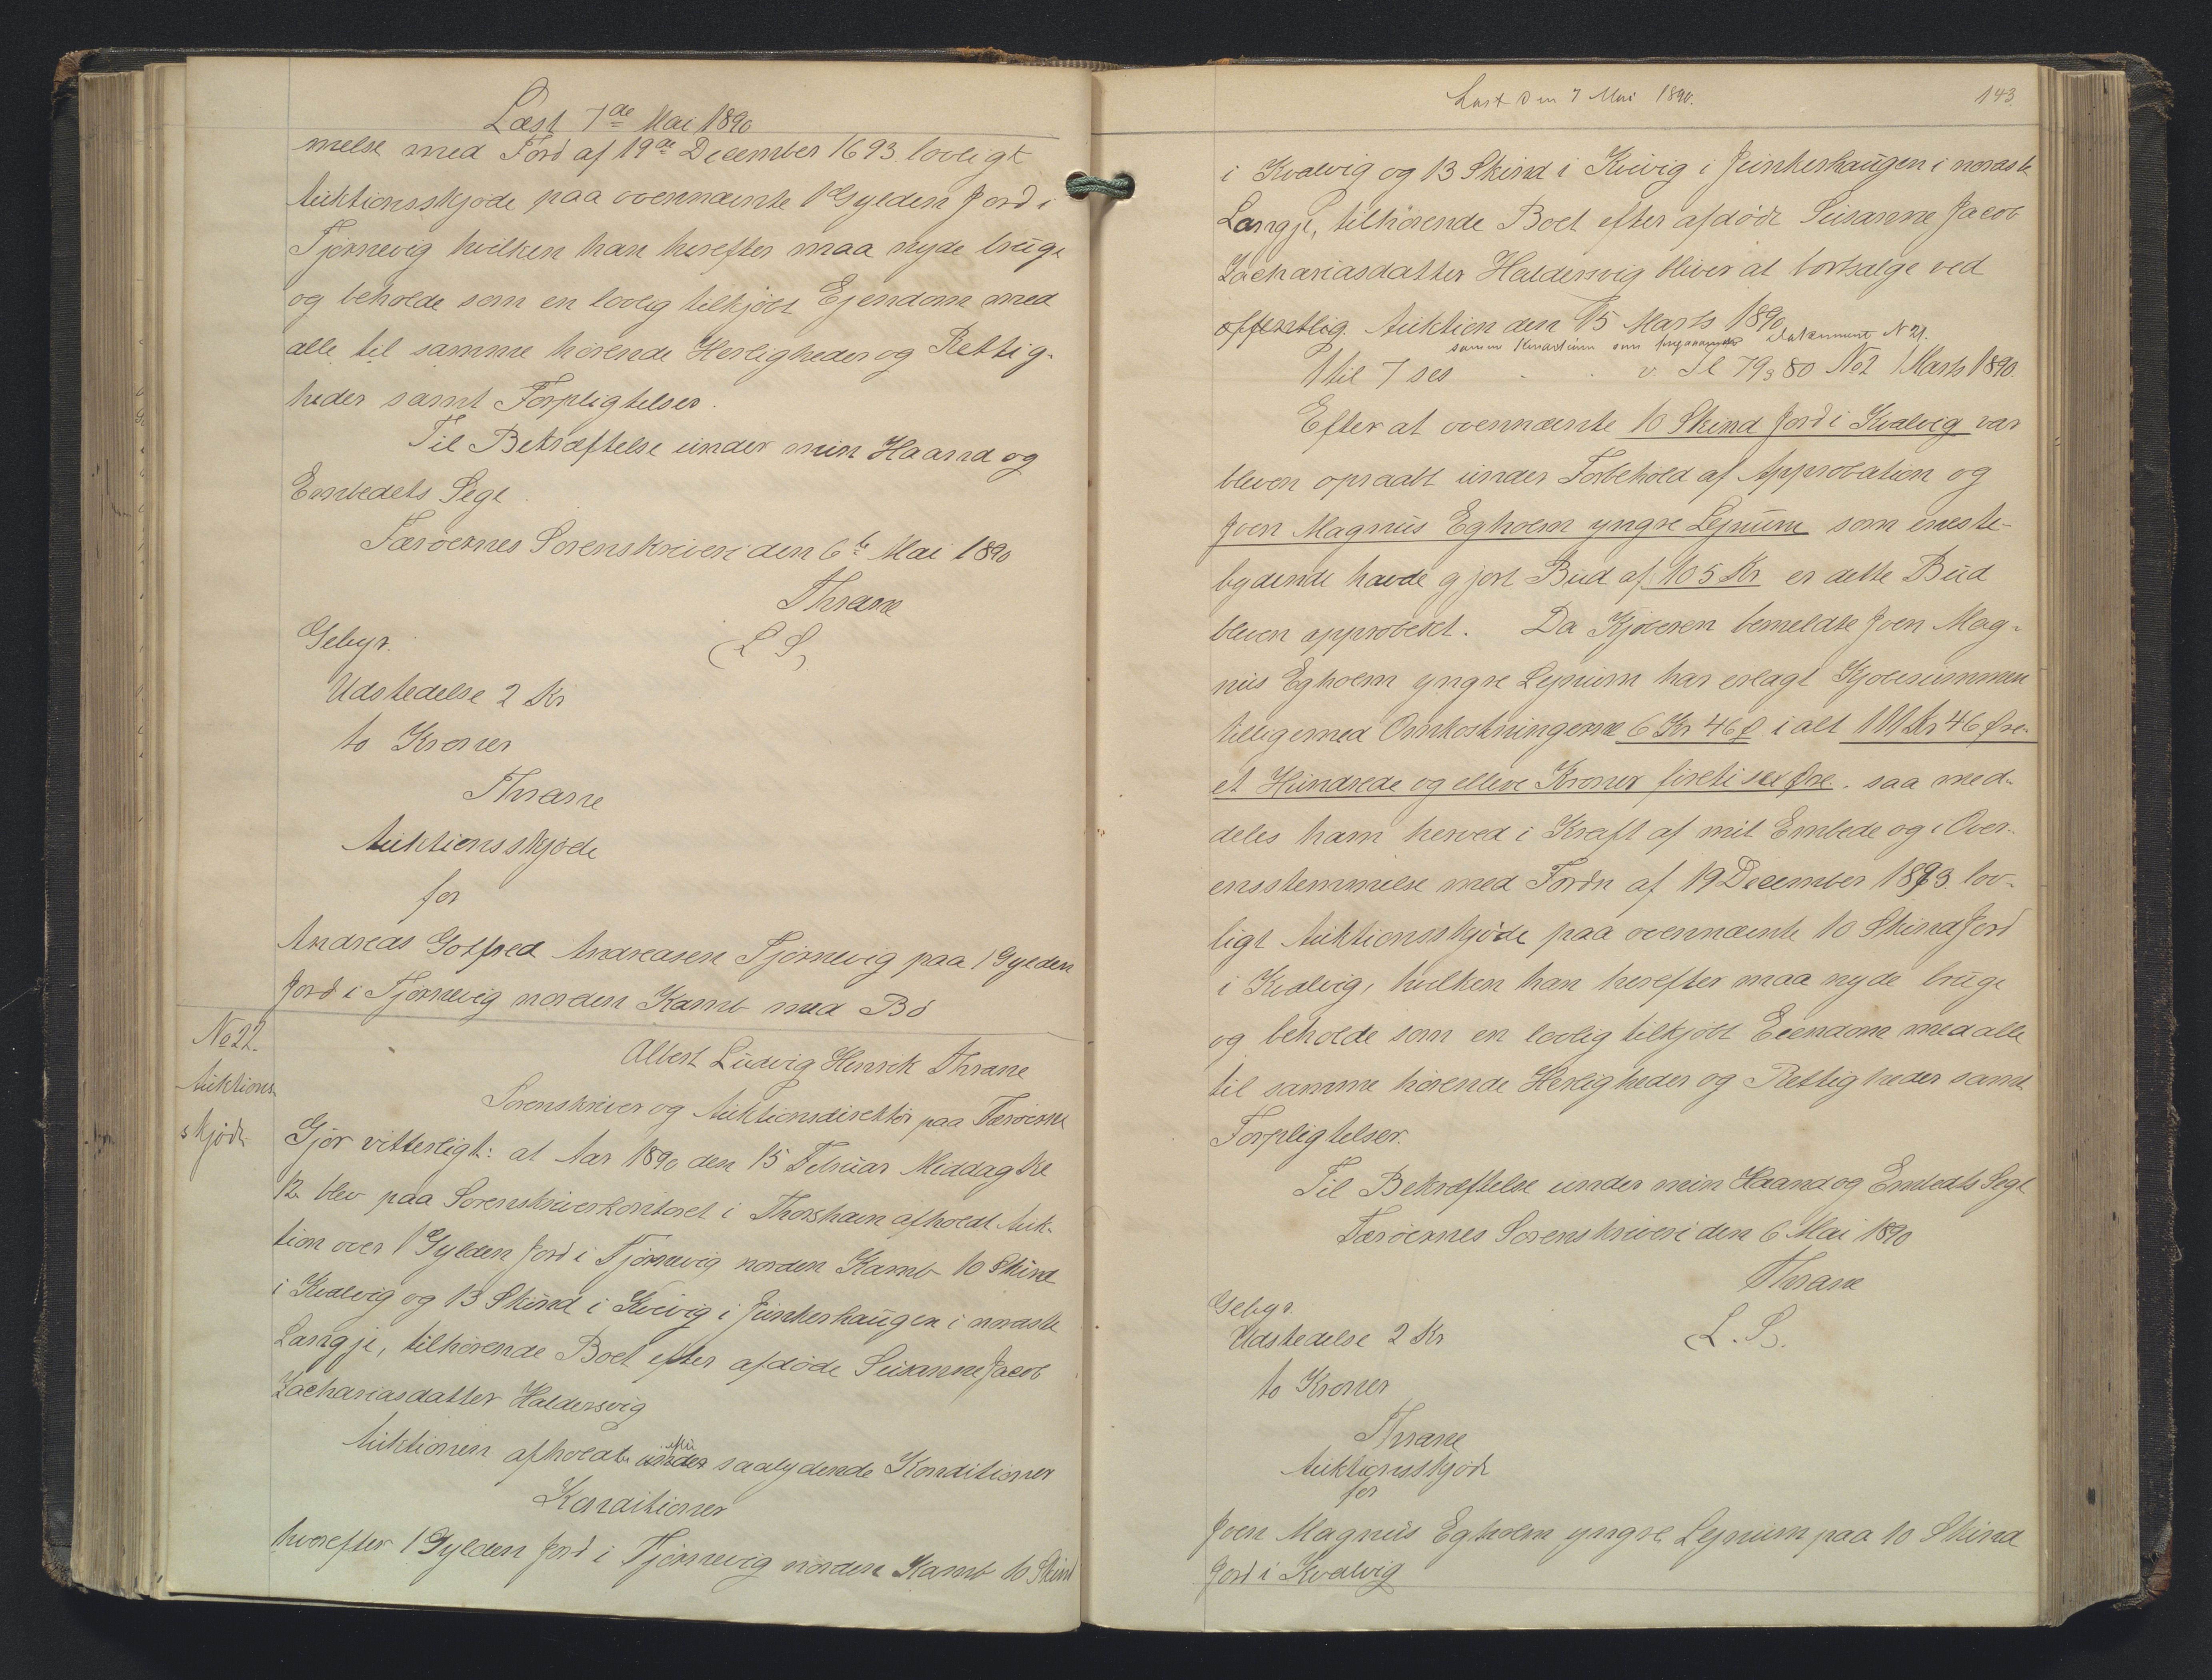 Læst 7de Mai 1890
melse med Ford af 19de December 1693 lovligt
Auktionsskjøde paa ovennævnte 1 Gylden Jord i
Tjørnevig hvilken han herefter maa nyde bruge
og beholde som en lovlig tilkjøbt Ejendom med
alle til samme hørende Herligheder og Rettig-
heder samt Forpligtelser.
Til Bekræftelse under min Haand og
Embedets Segl.
Færøernes Sorenskriveri den 6te Mai 1890
Thrane
(L S)
Gebyr.
Udstedelse 2 Kr
to Kroner
Thrane
Auktionsskjøde
for
Andreas Gotfred Andreasen Tjørnevig paa 1 Gylden
Jord i Tjørnevig norden Kamb med Bø
No 22.
Auktions-
skjøde
Albert Ludvig Henrik Thrane
Sorenskriver og Auktionsdirektør paa Færøerne
Gjør vitterligt: at Aar 1890 den 15 Februar Middag Kl
12 blev paa Sorenskriverkontoret i Thorshavn afholdt Auk-
tion over 1 Gylden Jord i Tjørnevig norden Kamb 10 Skind
i Kvalvig og 13 Skind i Kvivig i Junkerhaugen i nordste
Langje, tilhørende Boet efter afdøde Susanne Jacob
Zachariasdatter Haldersvig
Auktionen afholdtes under efter saalydende Konditioner
Konditioner
hvorefter 1 Gylden Jord i Tjørnevig norden Kamb 10 Skind
Læst den 7 Mai 1890.
143.
i Kvalvig og 13 Skind i Kvivig i Junkerhaugen i nordste
Langje, tilhørende Boet efter afdøde Susanne Jacob
Zachariasdatter Haldersvig bliver at bortsælge ved
offentlig Auktion den 15 Marts 1890
samme som Dokument N 21.
1 til 7 ses v. Sl 79, 80 No 2 1 Marts 1890.
Efter at ovennævnte 10 Skind Jord i Kvalvig var
bleven opraabt under Forbehold af Approbation og
Joen Magnus Egholm yngre Lejnum som eneste-
bydende havde gjort Bud af 105 Kr er dette Bud
bleven approberet. Da Kjøberen bemeldte Joen Mag-
nus Egholm yngre Lejnum har erlagt Kjøbesummen
tilligemed Omkostningerne 6 Kr 46 Ø i alt 111 Kr 46 Øre.
et Hundrede og elleve Kroner firetisex Øre. saa med-
deles ham herved i Kraft af mit Embede og i Over-
ensstemmelse med Fordn af 19 December 1693 lov-
ligt Auktionsskjøde paa ovennævnte 10 Skind Jord
i Kvalvig, hvilken han herefter maa nyde bruge
og beholde som en lovlig tilkjøbt Eiendom med alle
til samme hørende Herligheder og Rettigheder samt
Forpligtelser.
Til Bekræftelse under min Haand og Embedets Segl
Færøernes Sorenskriveri den 6 Mai 1890
Thrane
L. S.
Gebyr.
Udstedelse 2 Kr
to Kroner
Thrane
Auktionsskjøde
for
Joen Magnus Egholm yngre Lejnum paa 10 Skind
Jord i Kvalvig